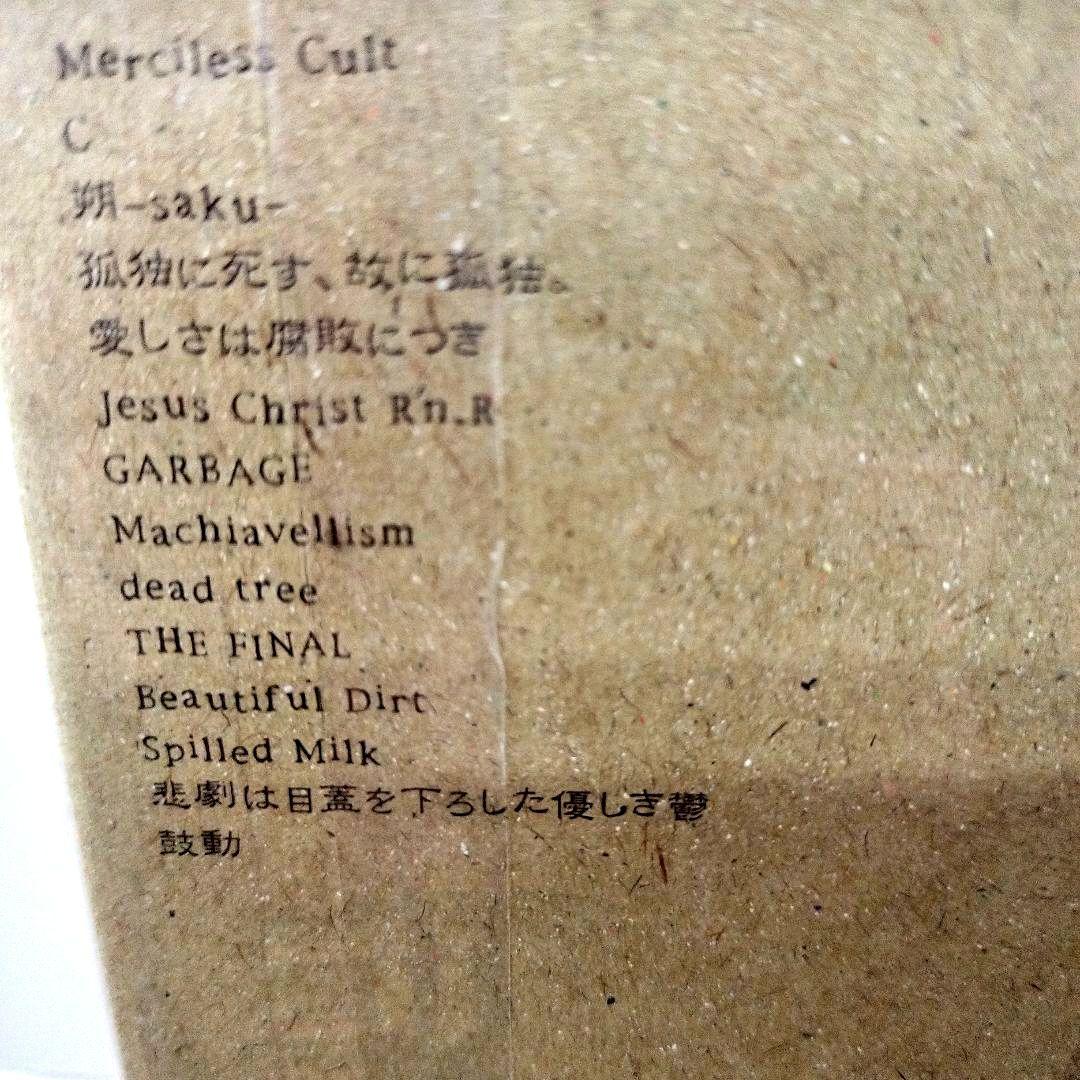 Merciless Cult
C
朔-saku-
孤独に死す、故に孤独。
愛しさは腐敗につき
Jesus Christ R'n.R
GARBAGE
Machiavellism
dead tree
THE FINAL
Beautiful Dirt
Spilled Milk
悲劇は目蓋を下ろした優しき鬱
鼓動